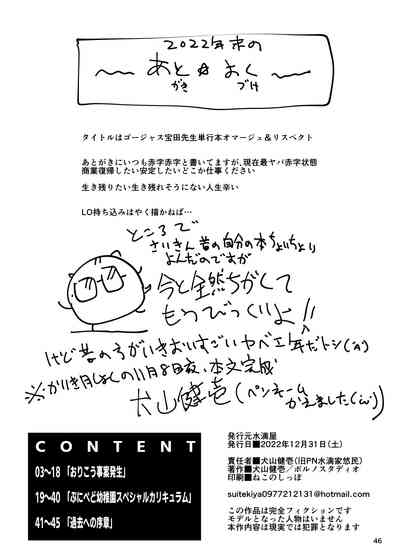 2022年末の
あと☆おく
がき づけ
タイトルはゴージャス宝田先生単行本オマージュ&リスペクト
あとがきにいつも赤字赤字と書いてますが、現在最ヤバ赤字状態
商業復帰したい安定したいどこか仕事ください
生き残りたい生き残れそうにない人生辛い
LO持ち込みはやく描かねば…
ところで
さいきん昔の自分の本ちょいちょい
よんだのですが
今と全然ちがくて
もうびっくりよ!!
けど昔の方がいきおいすごい
11月8日夜、本文完成
犬山健壱(ペンネーム
かえました
CONTENT
03〜18「おりこう事案発生」
19〜40「ぷにぺど幼稚園スペシャルカリキュラム」
41〜45「過去への序章」
発行元水滴屋
発行日■2022年12月31日(土)
責任者■犬山健壱(旧PN水滴家悠民)
著作■犬山健壱/ポルノスタディオ
印刷■ねこのしっぽ
suitekiya0977212131@hotmail.com
この作品は完全フィクションです
モデルとなった人物はいません
本作内容は現実では犯罪となります
46